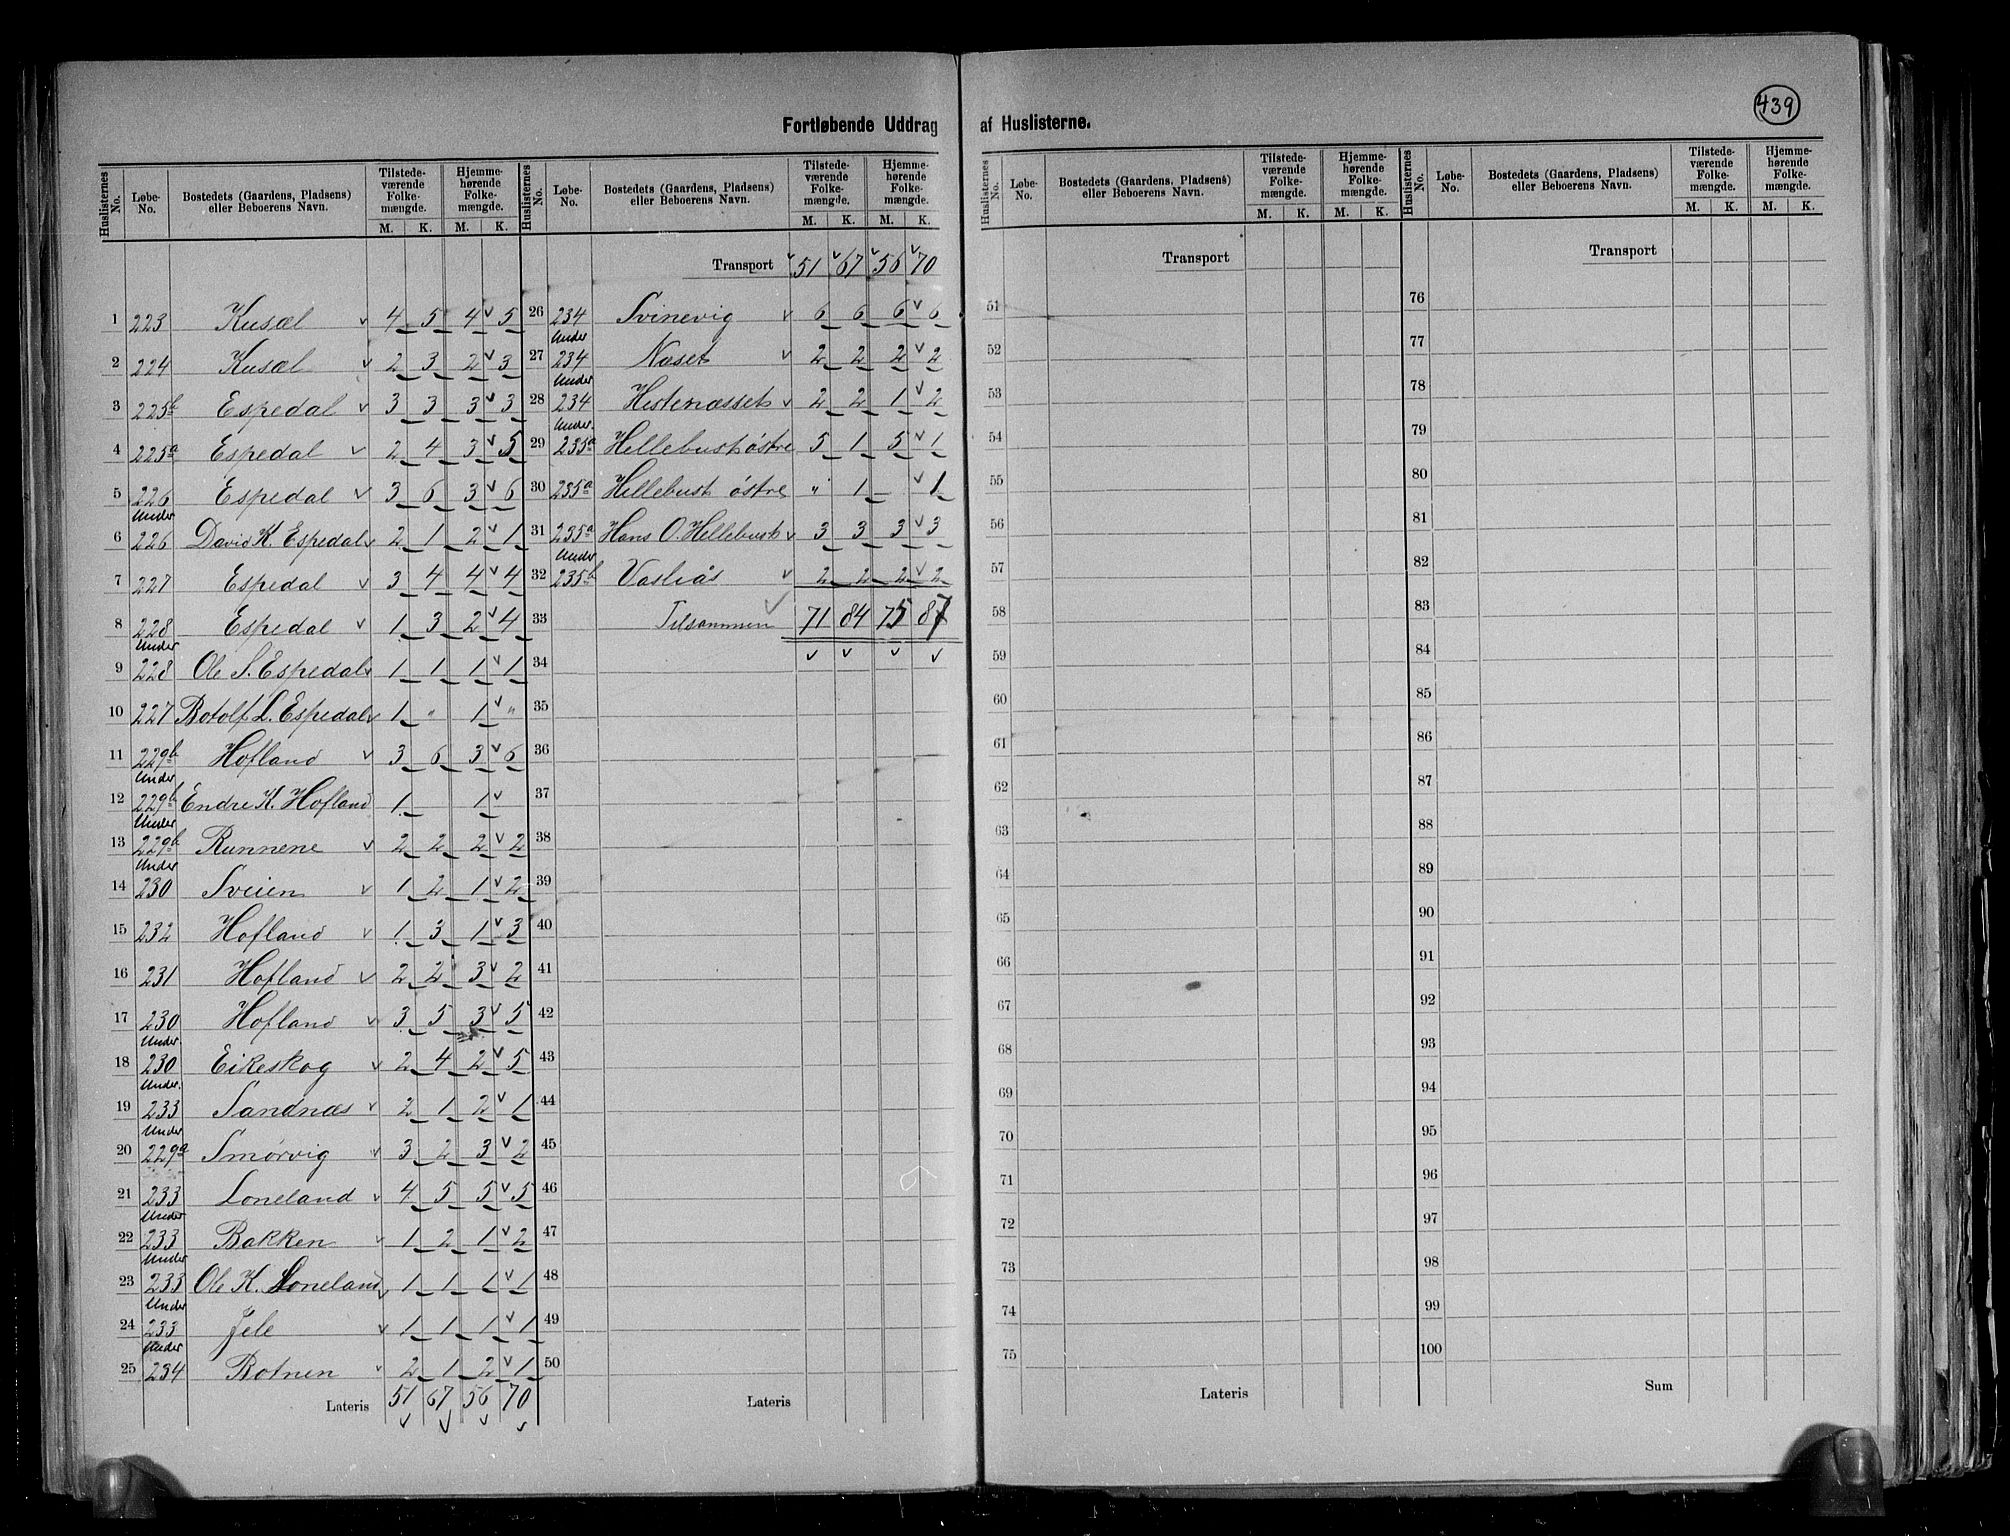 439
Fortløbende Uddrag af Huslisterne.
Huslisternes No. Løbe-No. Bostedets (Gaardens, Pladsens) eller Beboerens Navn. Tilstede-værende Folke-mængde. M. K. Hjemme-hørende Folke-mængde. M. K.
1 223 Kusæl 4 5 4 5
2 224 Kusæl 2 3 2 3
3 225b Espedal 3 3 3 3
4 225a Espedal 2 4 3 5
5 226 Espedal 3 6 3 6
6 Under 226 David K. Espedal 2 1 2 1
7 227 Espedal 3 4 4 4
8 228 Espedal 1 3 2 4
9 Under 228 Ole S. Espedal 1 1 1 1
10 227 Botolf L. Espedal 1 " 1 "
11 229b Hofland 3 6 3 6
12 Under 229b Endre K. Hofland 1 1
13 Under 229b Runnene 2 2 2 2
14 Under 230 Sveien 1 2 1 2
15 232 Hofland 1 3 1 3
16 231 Hofland 2 2 3 2
17 230 Hofland 3 5 3 5
18 Under 230 Eikeskog 2 4 2 5
19 Under 233 Sandnæs 2 1 2 1
20 Under 229a Smørvig 3 2 3 2
21 233 Loneland 4 5 5 5
22 Under 233 Bakken 1 2 1 2
23 Under 233 Ole K. Loneland 1 1 1 1
24 Under 233 Jele 1 1 1 1
25 Under 234 Botnen 2 1 2 1
Lateris 51 67 56 70
Huslisternes No. Løbe-No. Bostedets (Gaardens, Pladsens) eller Beboerens Navn. Tilstede-værende Folke-mængde. M. K. Hjemme-hørende Folke-mængde. M. K.
Transport 51 67 56 70
26 234 Svinevig 6 6 6 6
27 Under 234 Naset 2 2 2 2
28 Under 234 Hestenæsset 2 2 1 2
29 Under 235a Hellebust østre 5 1 5 1
30 235a Hellebust østre " 1 1
31 235a Hans O. Hellebust 3 3 3 3
32 Under 235b Vasliås 2 2 2 2
33 Tilsammen 71 84 75 87
34
35
36
37
38
39
40
41
42
43
44
45
46
47
48
49
50
Lateris
Huslisternes No. Løbe-No. Bostedets (Gaardens, Pladsens) eller Beboerens Navn. Tilstede-værende Folke-mængde. M. K. Hjemme-hørende Folke-mængde. M. K.
Transport
51
52
53
54
55
56
57
58
59
60
61
62
63
64
65
66
67
68
69
70
71
72
73
74
75
Lateris
Huslisternes No. Løbe-No. Bostedets (Gaardens, Pladsens) eller Beboerens Navn. Tilstede-værende Folke-mængde. M. K. Hjemme-hørende Folke-mængde. M. K.
Transport
76
77
78
79
80
81
82
83
84
85
86
87
88
89
90
91
92
93
94
95
96
97
98
99
100
Sum